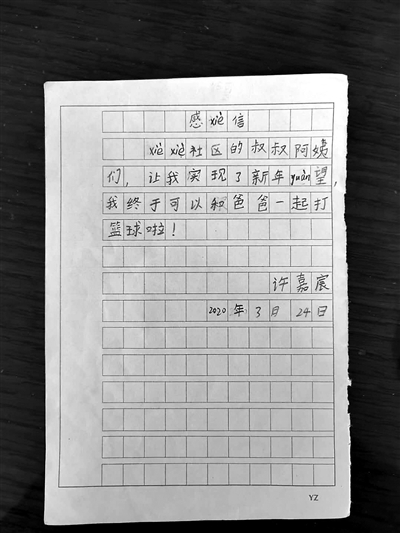 感xiè信
xièxiè社区的叔叔阿姨
们，让我实现了新年yuàn望，
我终于可以和爸爸一起打
篮球啦！
许嘉宸
2020年3月24日
YZ